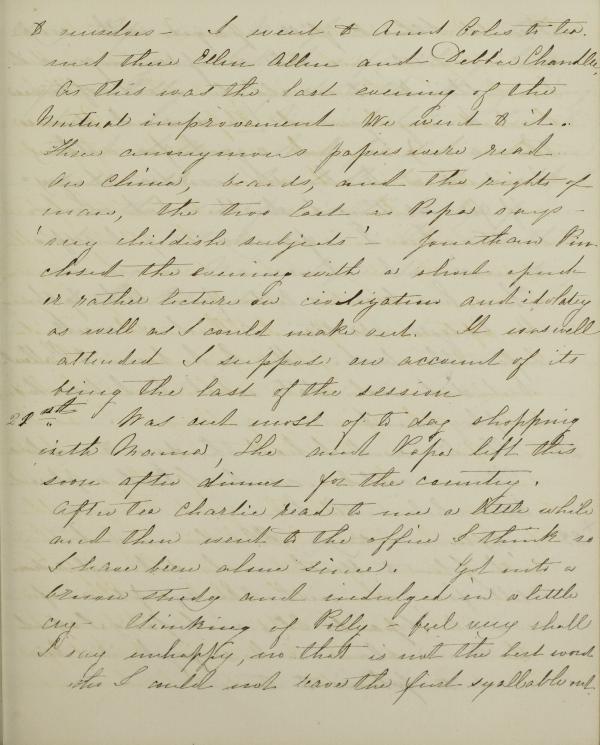 to ourselves - I went to Aunt Coles to tea.
met there Ellen Allen and Debb'e Chandlee,
As this was the last evening of the
Mutual improvement We went to it.
Three anonymous papers were read
on China, beards, and the rights of
man, the two last as Papa says -
'very childish subjects' - Jonathan Pim
closed the evening with a short speech
or rather lecture on civilization and idolatry
as well as I could make out. It was well
attended I suppose on account of its
being the last of the session
Was out most of to day shopping
with Mama, She and Papa left this
soon after dinner for the country.
After tea Charlie read to me a little while
and then went to the office I think so
I have been alone since. Got into a
brown study and indulged in a little
cry - thinking of Polly - feel very shall
I say unhappy, no that is not the best word
I could not leave the first syllable out